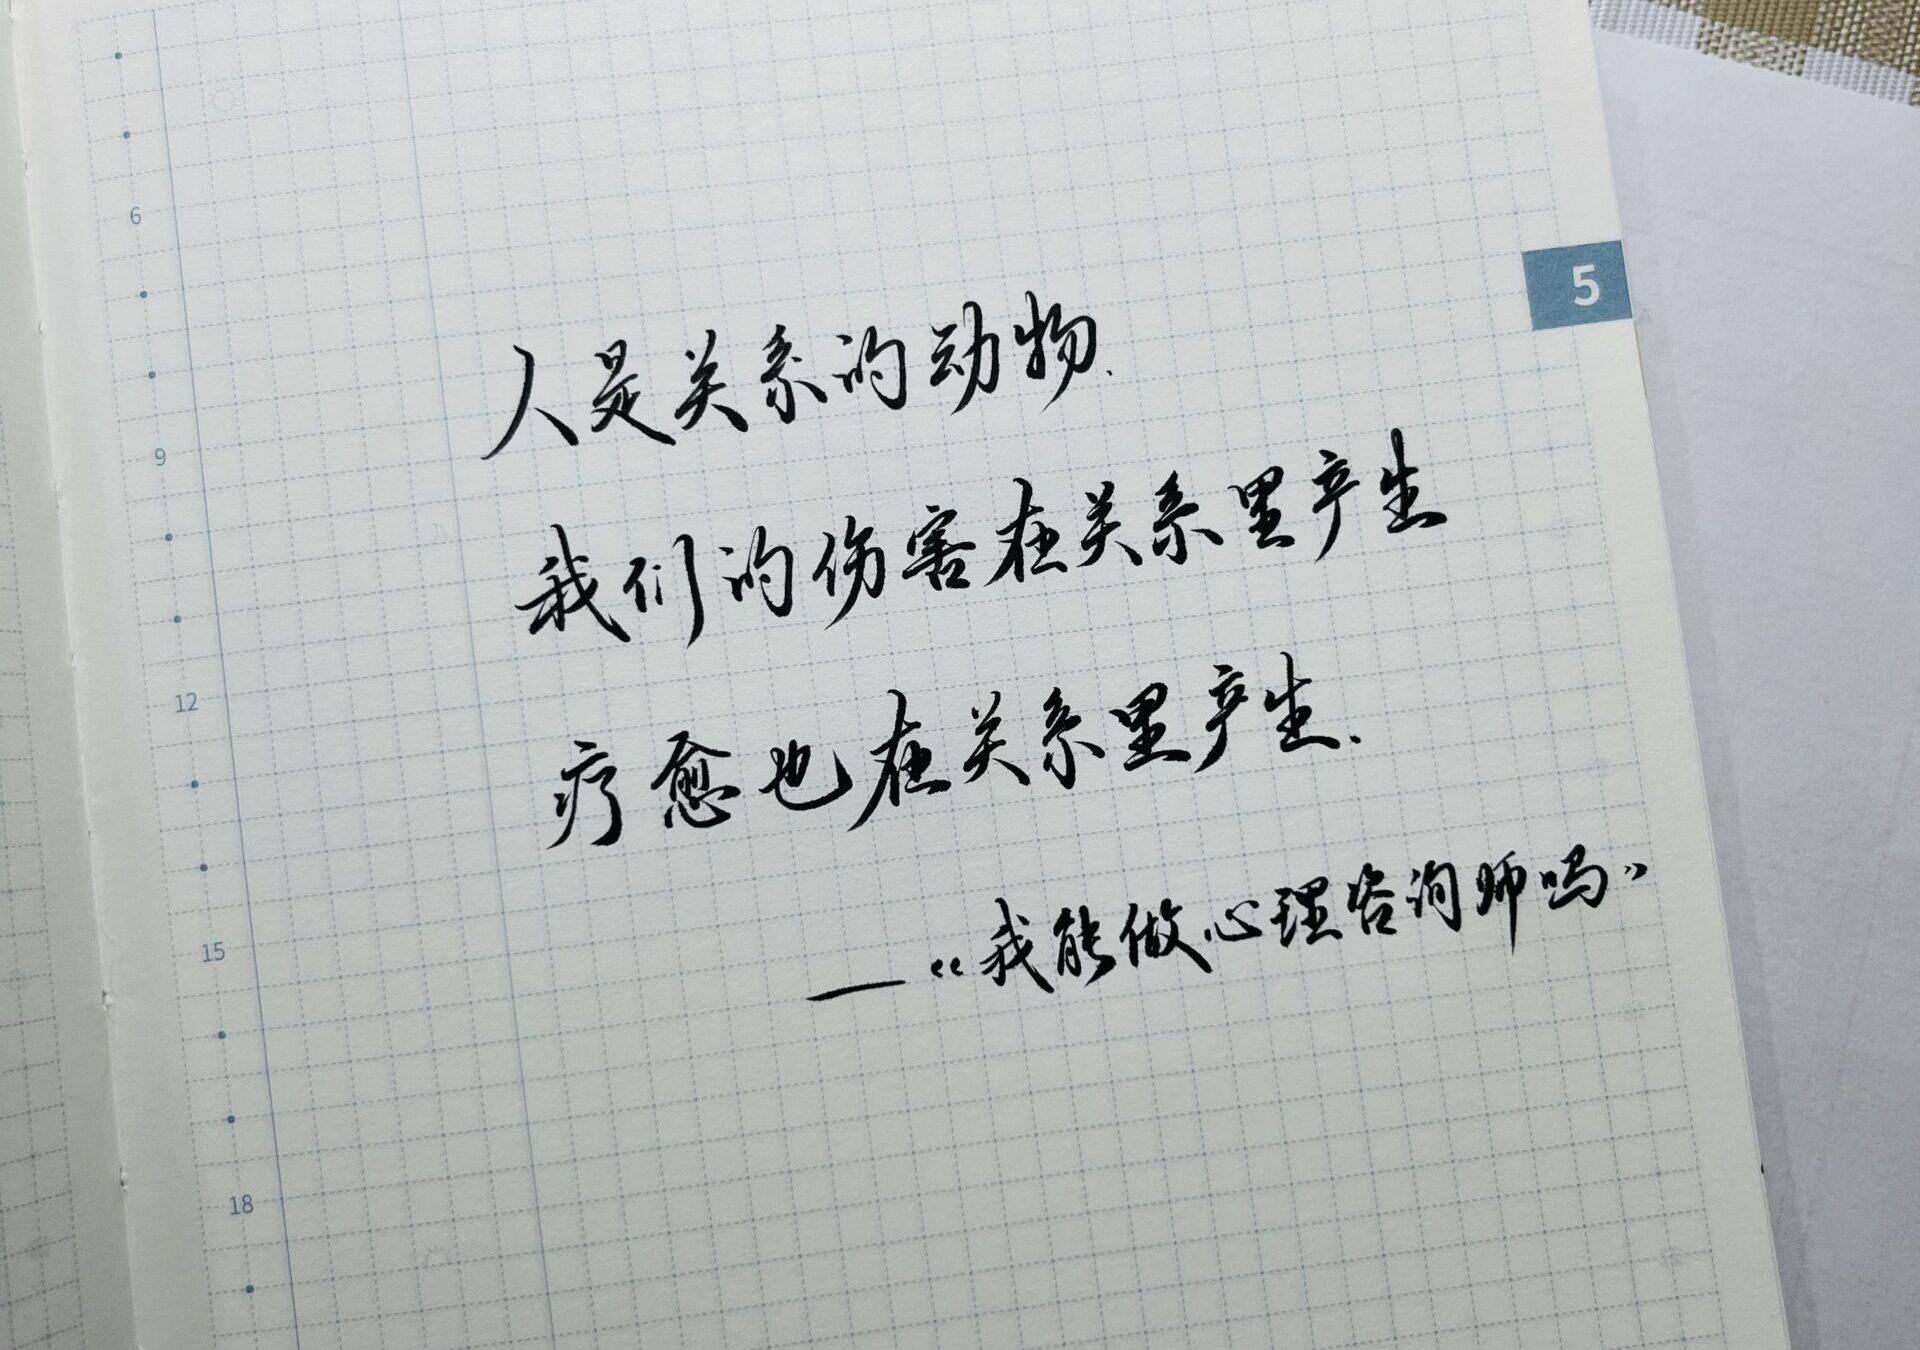 6
9
12
15
18
5
人是关系的动物.
我们的伤害在关系里产生
疗愈也在关系里产生.
—《我能做心理咨询师吗》